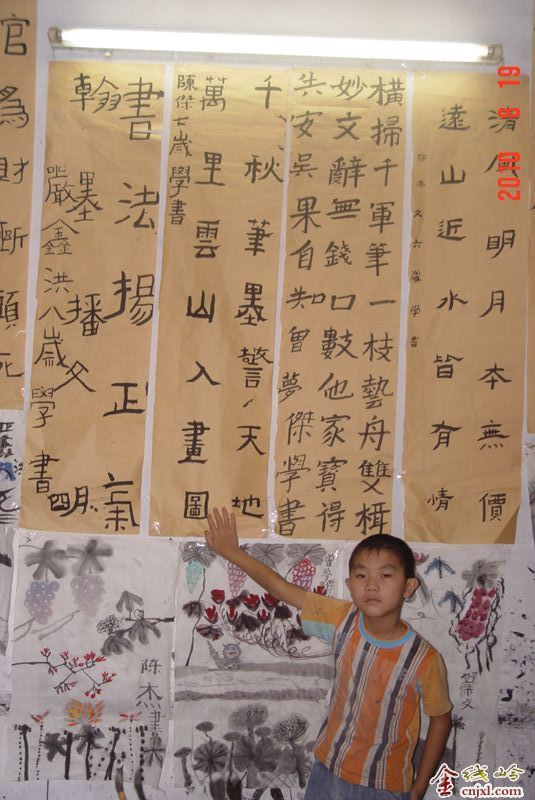 清風明月本無價
遠山近水皆有情
文六歲學書
橫掃千軍筆一枝藝舟雙楫
妙文辭無錢口數他家寶得
失安吳果自知曾夢傑學書
千秋筆墨驚天地
萬里雲山入畫圖
陳傑七歲學書
書法揚正氣
翰墨播文明
嚴鑫洪八歲學書
官為財斷頭死
陈杰畫
2010 8 19
金线岭
cnjxl.com